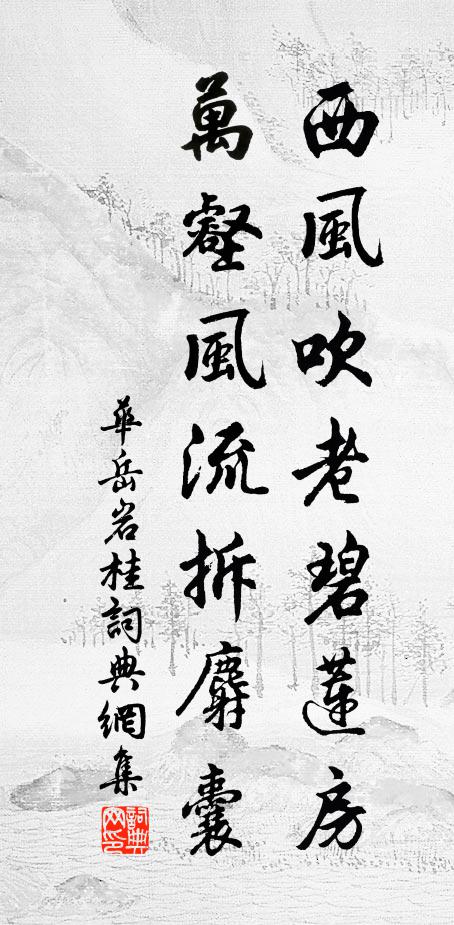 西風吹老碧蓮房
萬壑風流拆麝囊
華岳岩桂詞典網集
詞典
网印